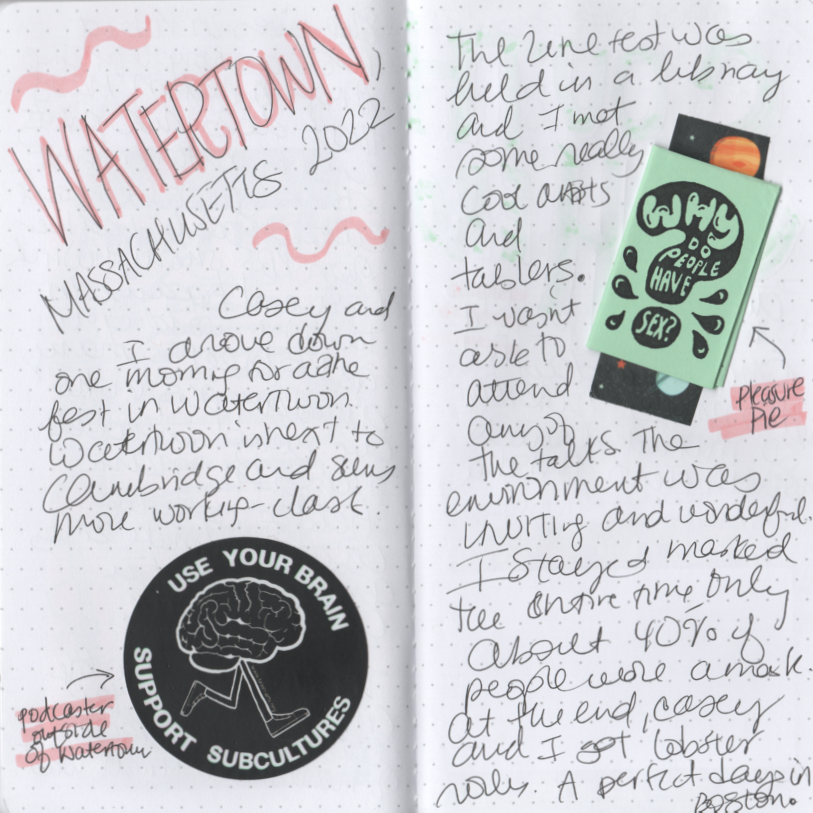 WATERTOWN,
MASSACHUSETTS 2022
Casey and
I drove down
one morning for a zine
fest in Watertwon.
Watertwon is next to
Cambridge and seems
more working-class.
USE YOUR BRAIN
SUPPORT SUBCULTURES
podcaster
outside
of Watertown
The zine fest was
held in a library
and I met
some really
cool artists
and
tablers.
I wasn't
able to
attend
any of
the talks. The
environment was
inviting and wonderful.
I stayed masked
the entire time only
about 40% of
people wore a mask.
at the end, casey
and I got lobster
rolls. A perfect day in
Boston.
WHY
DO
PEOPLE
HAVE
SEX?
pleasure
pie